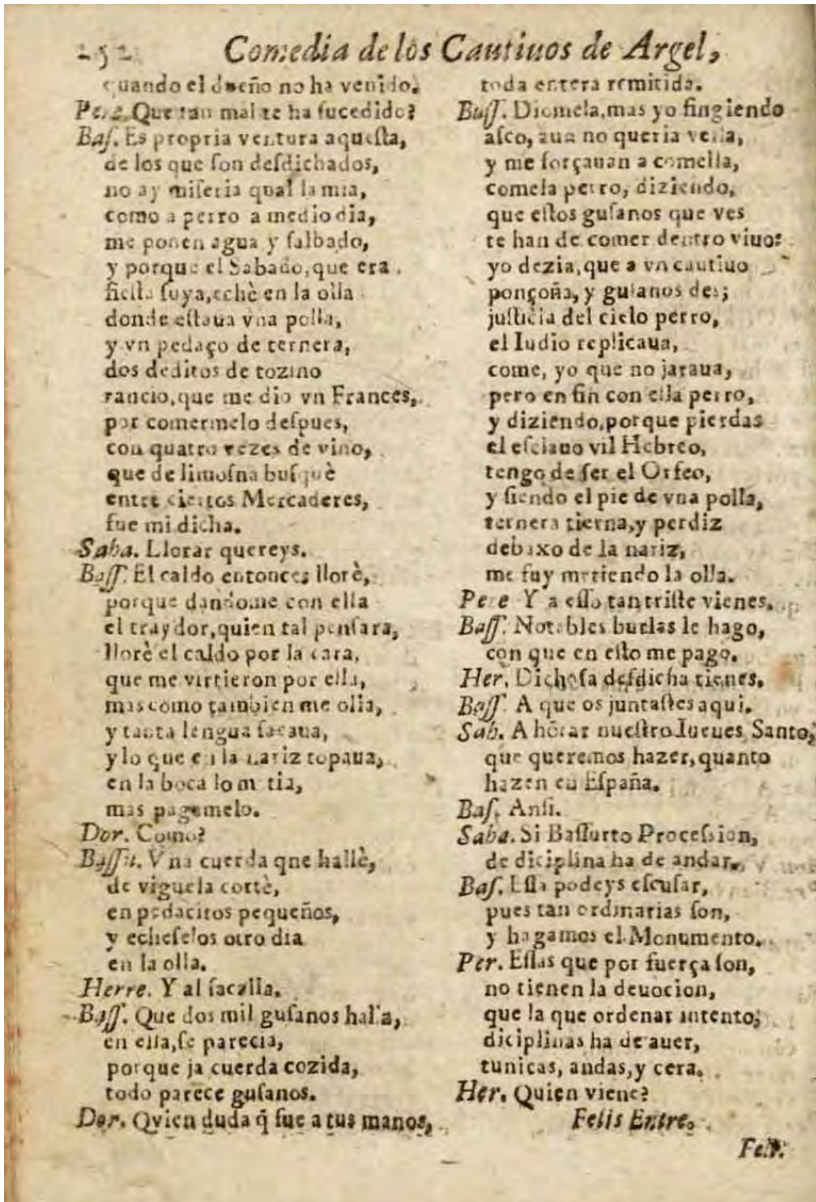 252 Comedia de los Cautiuos de Argel,
quando el dueño no ha venido.
Pere. Que tan mal te ha sucedido?
Bas. Es propria ventura aquesta,
de los que son desdichados,
no ay miseria qual la mia,
como a perro a medio dia,
me ponen agua y salbado,
y porque el Sabado, que era
fiesta suya, echè en la olla
donde estaua vna polla,
y vn pedaço de ternera,
dos deditos de tozino
rancio, que me dio vn Frances,
por comermelo despues,
con quatro vezes de vino,
que de limosna busquè
entre ciertos Mercaderes,
fue mi dicha.
Saba. Llorar quereys.
Bass. El caldo entonces llorè,
porque dandome con ella
el traydor, quien tal pensara,
llorè el caldo por la cara,
que me virtieron por ella,
mas como tambien me olia,
y tanta lengua sacaua,
y lo que en la nariz topaua,
en la boca lo metia,
mas paguemelo.
Dor. Como?
Bassu. Vna cuerda qne hallè,
de viguela cortè,
en pedacitos pequeños,
y echeselos otro dia
en la olla.
Herre. Y al sacalla.
Bass. Que dos mil gusanos halla,
en ella, se parecia,
porque ja cuerda cozida,
todo parece gusanos.
Dor. Qvien duda q̃ fue a tus manos,
toda entera remitida.
Bass. Diomela, mas yo fingiendo
asco, aun no queria vella,
y me forçauan a comella,
comela perro, diziendo,
que estos gusanos que ves
te han de comer dentro viuo:
yo dezia, que a vn cautiuo
ponçoña, y gusanos des;
justicia del cielo perro,
el Iudio replicaua,
come, yo que no jaraua,
pero en fin con ella perro,
y diziendo, porque pierdas
el esclauo vil Hebreo,
tengo de ser el Orfeo,
y siendo el pie de vna polla,
ternera tierna, y perdiz
debaxo de la nariz,
me fuy metiendo la olla.
Pere Y a esso tan triste vienes.
Bass. Notables burlas le hago,
con que en esto me pago.
Her. Dichosa desdicha tienes.
Bass. A que os juntastes aqui.
Sab. A hõrar nuestro Iueues Santo,
que queremos hazer, quanto
hazen en España.
Bas. Ansi.
Saba. Si Bassurto Procession,
de diciplina ha de andar.
Bas. Essa podeys escusar,
pues tan ordinarias son,
y hagamos el Monumento.
Per. Essas que por fuerça son,
no tienen la deuocion,
que la que ordenar intento;
diciplinas ha de auer,
tunicas, andas, y cera.
Her. Quien viene?
Felis Entre.
Feli.